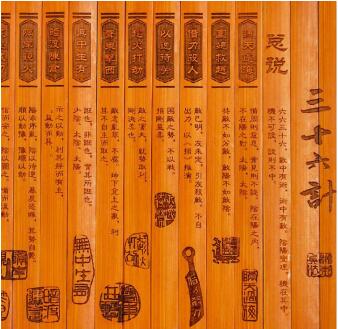 三十六計
总说
六六三十六，數中有術，術中有數。陰陽燮理，機在其中。
機不可設，設則不中。
瞞天過海
備周則意怠，常見則不疑。陰在陽之內，
不在陽之對。太陽，太陰。
圍魏救趙
共敵不如分敵，敵陽不如敵陰。
借刀殺人
敵已明，友未定，引友殺敵，不自
出力，以《損》推演。
以逸待勞
困敵之勢，不以戰。
損剛益柔。
趁火打劫
敵之害大，就勢取利，
剛決柔也。
聲東擊西
敵志亂萃，不虞，坤下兌上之象，利
其不自主而取之。
無中生有
誑也，非誑也，實其所誑也。
少陰，太陰，太陽。
暗渡陳倉
示之以動，利其靜而有主，
益動而巽。
隔岸觀火
陽乖序亂，陰以待逆。暴戾恣睢，其勢自斃。
順以動豫，豫順以動。
信而安之，陰以圖之，備而後動
無中生有
瞞天過海